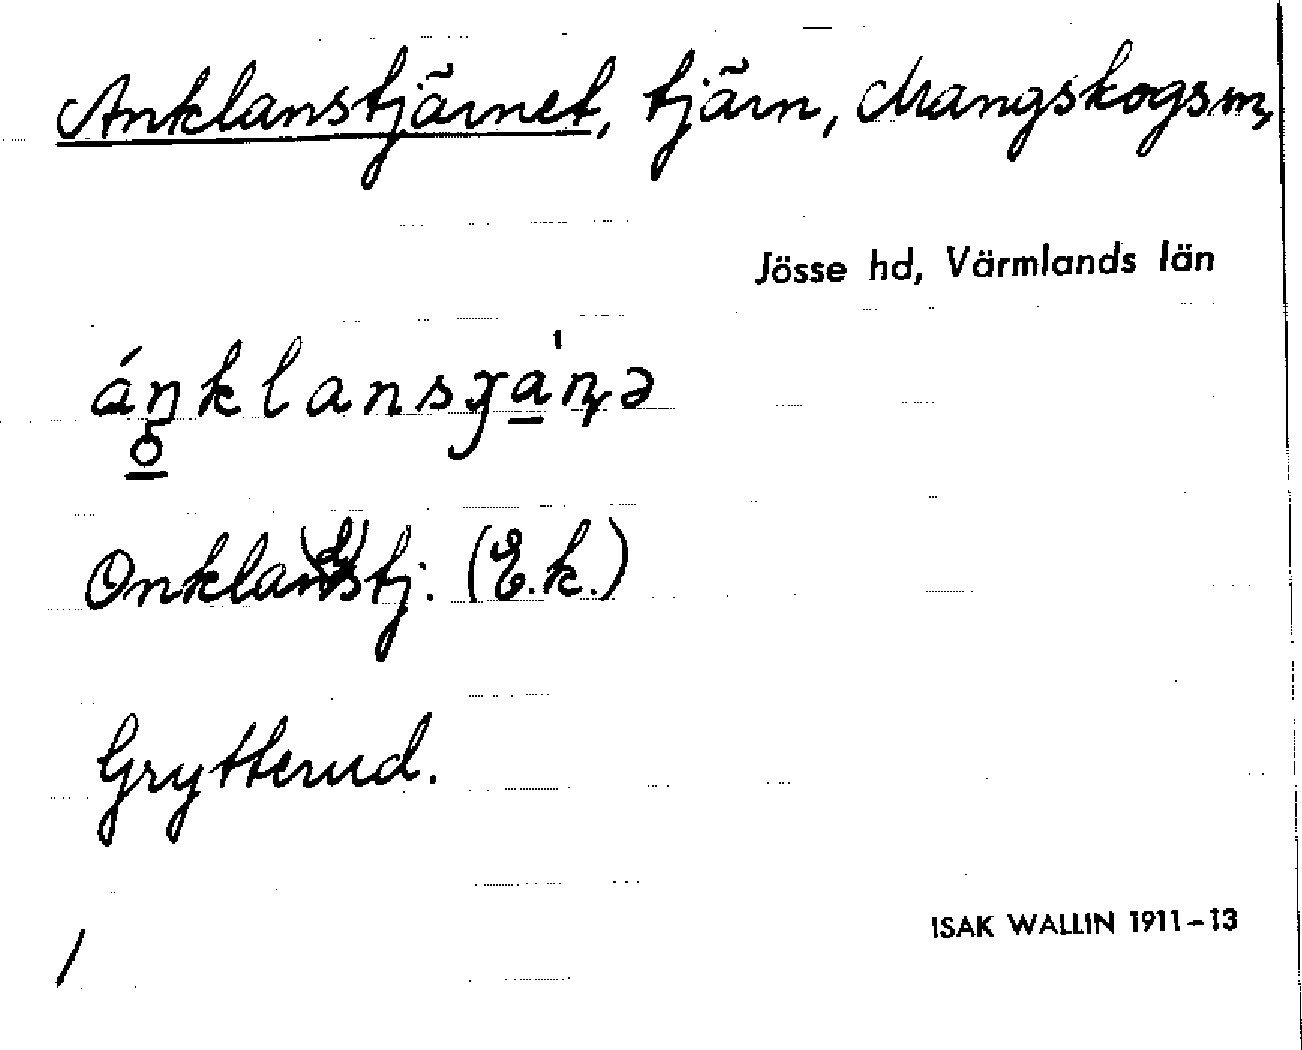 Anklanstjärnet, tjärn, Mangskogs sn,
Jösse hd, Värmlands län
Onklan(d)stj. (E.k.)
Grytterud.
ISAK WALLIN 1911–13